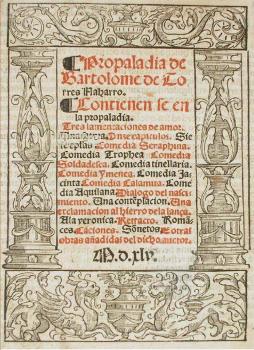 ¶ Propaladia de
Bartolome de To
rres Naharro.
¶ Contienen se en
la propaladia.
Tres lamentaciones de amor.
Una satyra. Onze capitulos. Sie
te epistolas Comedia Seraphina.
Comedia Trophea Comedia
Soldadesca. Comedia tinellaria.
Comedia Ymenea. Comedia Ja-
cinta Comedia Calamita. Come
dia Aquilana Dialogo del nasci-
miento. Una contēplacion. Una
exclamacion al hierro de la lança.
A la veronica. Retracto. Romā-
ces. Cāciones. Sonetos. E otras
obras añadidas del dicho auctor.
M.D.xlv.